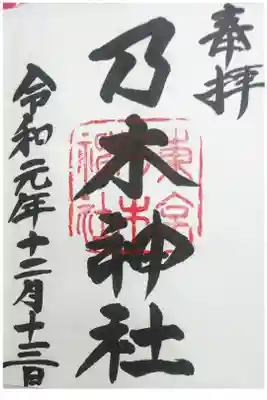 奉拝
乃木神社
令和元年十二月十三日